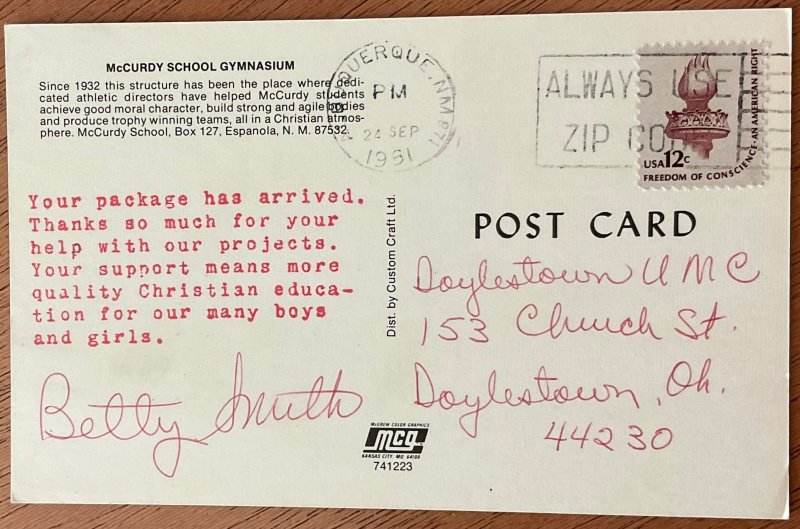 McCURDY SCHOOL GYMNASIUM
Since 1932 this structure has been the place where dedi-
cated athletic directors have helped McCurdy students
achieve good moral character, build strong and agile bodies
and produce trophy winning teams, all in a Christian atmos-
phere. McCurdy School, Box 127, Espanola, N. M. 87532.
Your package has arrived.
Thanks so much for your
help with our projects.
Your support means more
quality Christian educa-
tion for our many boys
and girls.
Betty Smith
Dist. by Custom Craft Ltd.
McGREW COLOR GRAPHICS
mcg
KANSAS CITY, MO 64108
741223
ALBUQUERQUE, N.M. 871
PM
24 SEP
1981
ALWAYS USE
ZIP CODE
USA 12c
FREEDOM OF CONSCIENCE-AN AMERICAN RIGHT
POST CARD
Doylestown UMC
153 Church St.
Doylestown, Oh.
44230